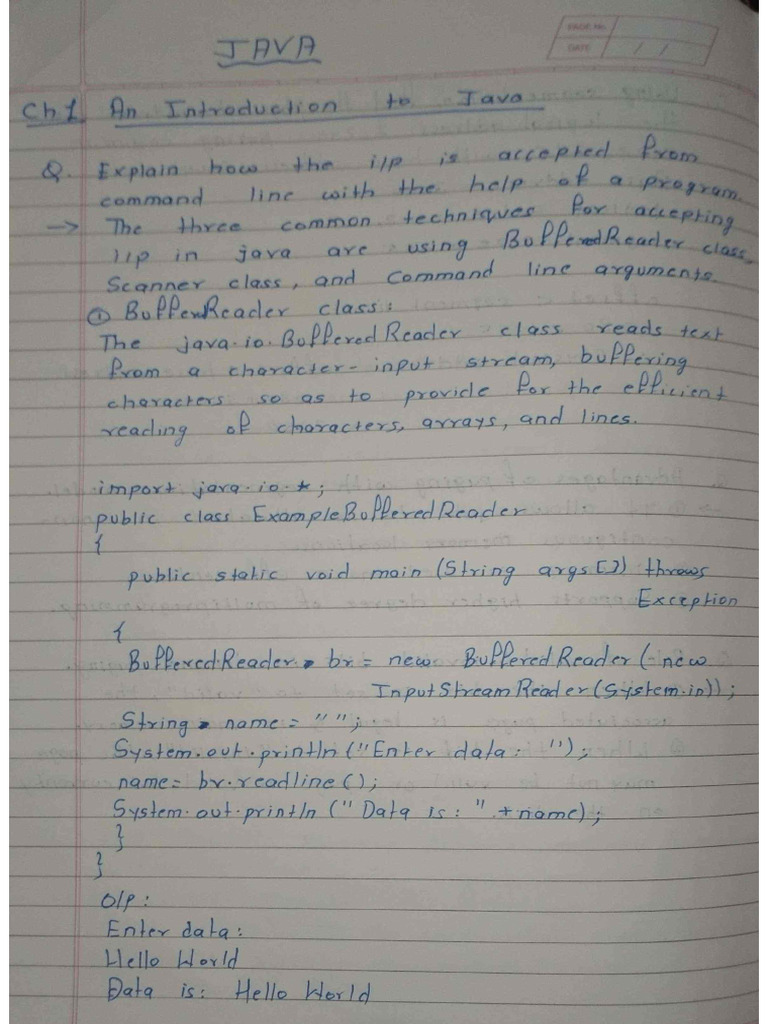 PAGE No.
DATE / /
JAVA
Ch 1. An Introduction to Java
Q. Explain how the i/p is accepted from
command line with the help of a program.
→ The three common techniques for accepting
i/p in java are using BufferedReader class,
Scanner class, and Command line arguments.
① BufferReader class:
The java.io.BufferedReader class reads text
from a character-input stream, buffering
characters so as to provide for the efficient
reading of characters, arrays, and lines.
import java.io.*;
public class ExampleBufferedReader
{
public static void main (String args[]) throws
Exception
{
BufferedReader br = new BufferedReader (new
InputStreamReader(System.in));
String name = " ";
System.out.println ("Enter data: ");
name = br.readline ();
System.out.println (" Data is: " +name);
}
}
O/P:
Enter data:
Hello World
Data is: Hello World